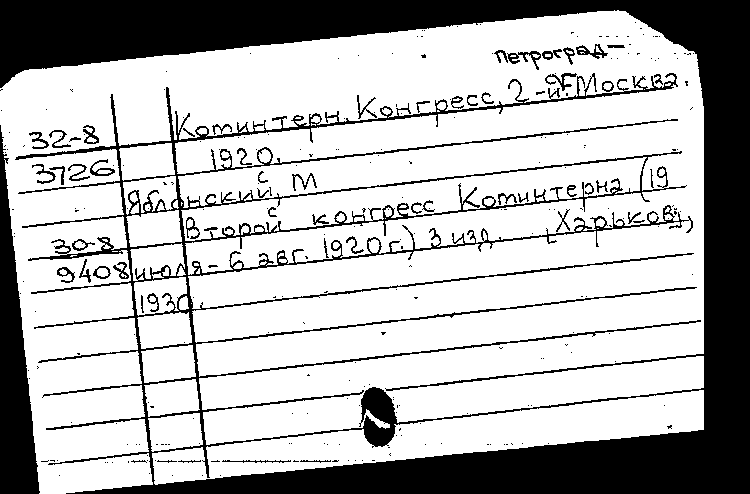 Петроград-
32-8 Котинтерн. Конгресс, 2-й. Москва.
3726 1920.
Яблонский, М
Второй конгресс Котинтерна (19
30-8
9408 июля - 6 авг. 1920 г.) 3 изд. [Харьков],
1930.